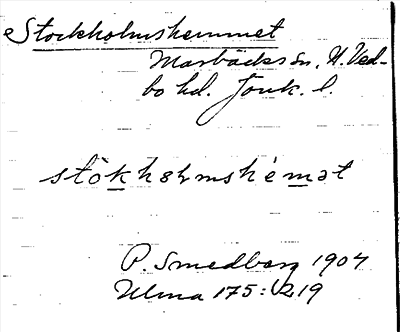 Stockholmshemmet
Marbäcks sn, N. Ved-
bo hd. Jönk. l.
stòkhəlmshèmət
P. Smedberg 1904
Ulma 175:1219